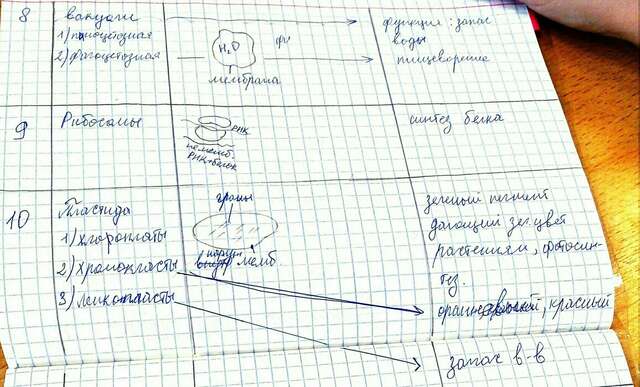 8 вакуоли функция: запас
1) пиноцитозная воды
2) фагоцитозная H₂O пищеварение
мембрана
9 Рибосомы РНК синтез белка
не мемб.
РНК+белок
10 Пластида граны зеленый пигмент
1) хлоропласты дающий зел. цвет
2) хромопласты наружн мемб растениям, фотосин-
3) лейкопласты внутр тез.
красный
запас в-в